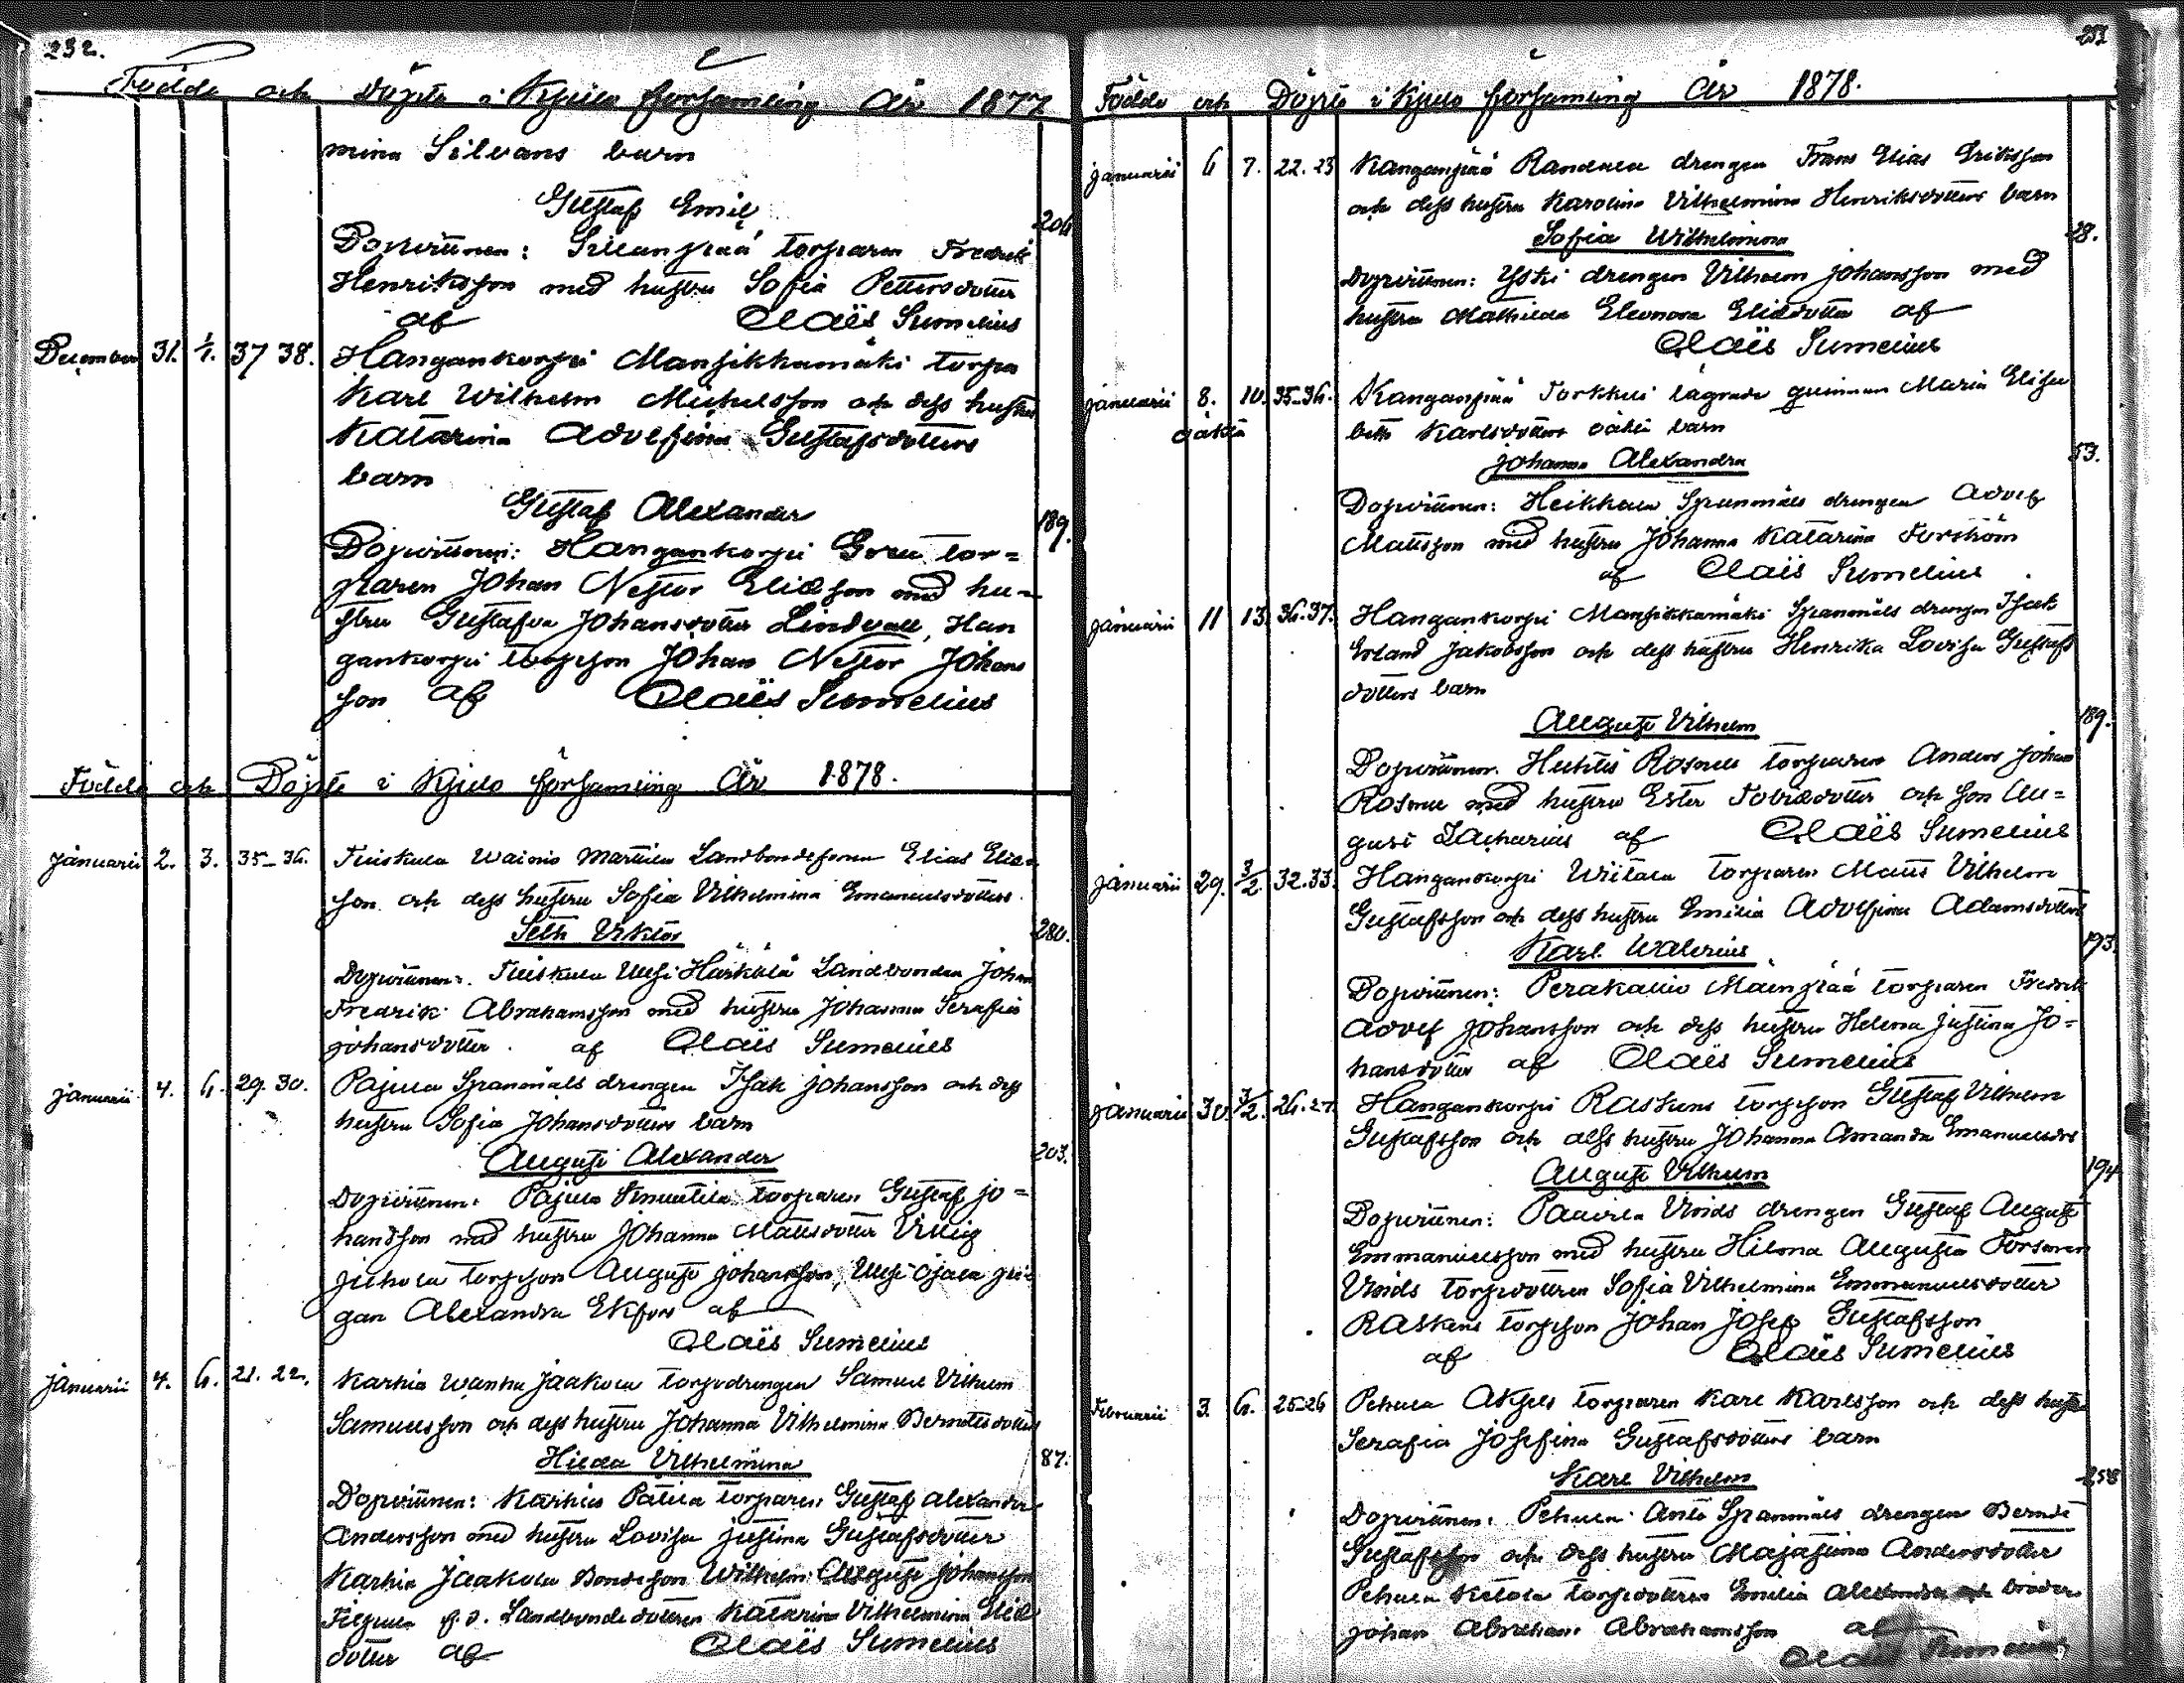 232.
Födde och döpte i Kjulo församling År 1877
mina Silvans barn
Gustaf Emil
204
Dopvittnen: torparen Fredrik
Henriksson med hustru Sofia Pettersdotter
af Claës Sumelius
December 31. 1/1. 37 38. Hangankorpi Mansikkamäki torpa
Karl Wilhelm Michelsson och dess hustru
Katarina Adolfina Gustafsdotters
barn
Gustaf Alexander
189.
Dopvittnen: Hangankorpi tor=
paren Johan Nestor Eliasson med hu-
stru Gustafva Johansdotter Lindvall, Han
gankorpi torpson Johan Nestor Johans
son af Claës Sumelius
Födde och Döpte i Kjulo församling År 1878.
Januarii 2. 3. 35-36. Tuiskula Wainio Landbondesonen Elias Elias
son och dess hustru Sofia Vilhelmina Emanuelsdotters
Seth Viktor
280.
Dopvittnen: Tuiskula Uusi Härkälä Landbonden Johan
Fredrik Abrahamsson med hustru Johanna Serafia
Johansdotter. af Claës Sumelius
Januarii 4. 6. 29. 30. Pajula Spanmåls drengen Isak Johansson och dess
hustru Sofia Johansdotters barn
August Alexander
203.
Dopvittnen: Pajula torparen Gustaf Jo=
hansson med hustru Johanna Mattsdotter Villig
Juhola torpson August Johansson, Uusi Ojala pi=
gan Alexandra Ekfors af
Claës Sumelius
Januarii 4. 6. 21. 22. Karhia Wanha Jaakola torpdrengen Samuel Vilhelm
Samuelsson och dess hustru Johanna Vilhelmina Berndtsdotters
Hilda Vilhelmina
87.
Dopvittnen: Karhia torparen Gustaf Alexander
Andersson med hustru Lovisa Justina Gustafsdotter
Karhia Jaakola Bondeson Wilhelm August Johansson
f.d. Landbondedottren Katarina Vilhelmina Elias
dotter af Claës Sumelius
Födde och Döpte i Kjulo församling År 1878.
Januarii 6 7. 22. 23 Kanganpää Randala drengen Frans Elias Eriksson
och dess hustru Karolina Vilhelmina Henriksdotters barn
Sofia Wilhelmina
28.
Dopvittnen: Yski drengen Vilhelm Johansson med
hustru Mathilda Eleonora Eliasdotter af
Claës Sumelius
Januarii 8. 10. 35-36. Kanganpää Torkkui lägrade qvinnan Maria Elisa
oäkta
beth Karlsdotters oäkta barn
Johanna Alexandra
53.
Dopvittnen: Heikkola Spanmåls drengen Adolf
Mattsson med hustru Johanna Katarina
af Claës Sumelius
Januarii 11 13. 36.37. Hangankorpi Mansikkamäki Spanmåls drengen Isak
Erland Jakobsson och dess hustru Henrika Lovisa Gustafs
dotters barn
August Vilhelm
189.
Dopvittnen: Huhtis Rosnell torparen Anders Johan
Rosnell med hustru Ester Tobiasdotter och son Au=
gust Zacharias af Claës Sumelius
Januarii 29. 3/2. 32.33. Hangankorpi Wiitala torparen Matts Vilhelm
Gustafsson och dess hustru Emilia Adolfina Adamsdotters
Karl Walerius
193.
Dopvittnen: Perakallio Mäenpää torparen Fredrik
Adolf Johansson och dess hustru Helena Justina Jo=
hansdotter af Claës Sumelius
Januarii 30. 3/2. 26.27. Hangankorpi Raskens torpson Gustaf Vilhelm
Gustafsson och dess hustru Johanna Amanda Emanuelsdrs
August Vilhelm
194
Dopvittnen: Paavila Uoids drengen Gustaf August
Emmanuelsson med hustru Hilma Augusta
Uoids torpdottren Sofia Vilhelmina Emmanuelsdotter
Raskens torpson Johan Josef Gustafsson
af Claës Sumelius
Februarii 3. 6. 25-26 Pehula torparen Karl Karlsson och dess hustru
Serafia Josefina Gustafsdotters barn
Karl Vilhelm
258
Dopvittnen: Pehula Antö Spanmåls drengen Berndt
Gustafsson och dess hustru Maja Stina Andersdotter
Pehula Ketola torpdottren Emilia Alexandra och broder
Johan Abraham Abrahamsson af
Claës Sumelius